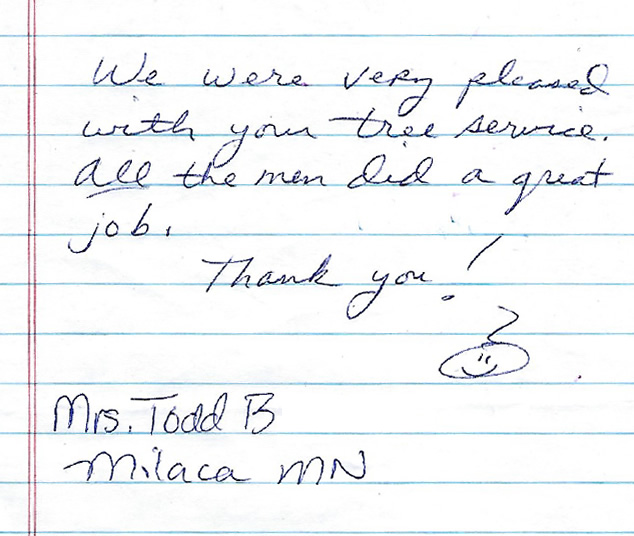 We were very pleased
with your tree service.
All the men did a great
job.
Thank you!
Mrs. Todd B
Milaca MN